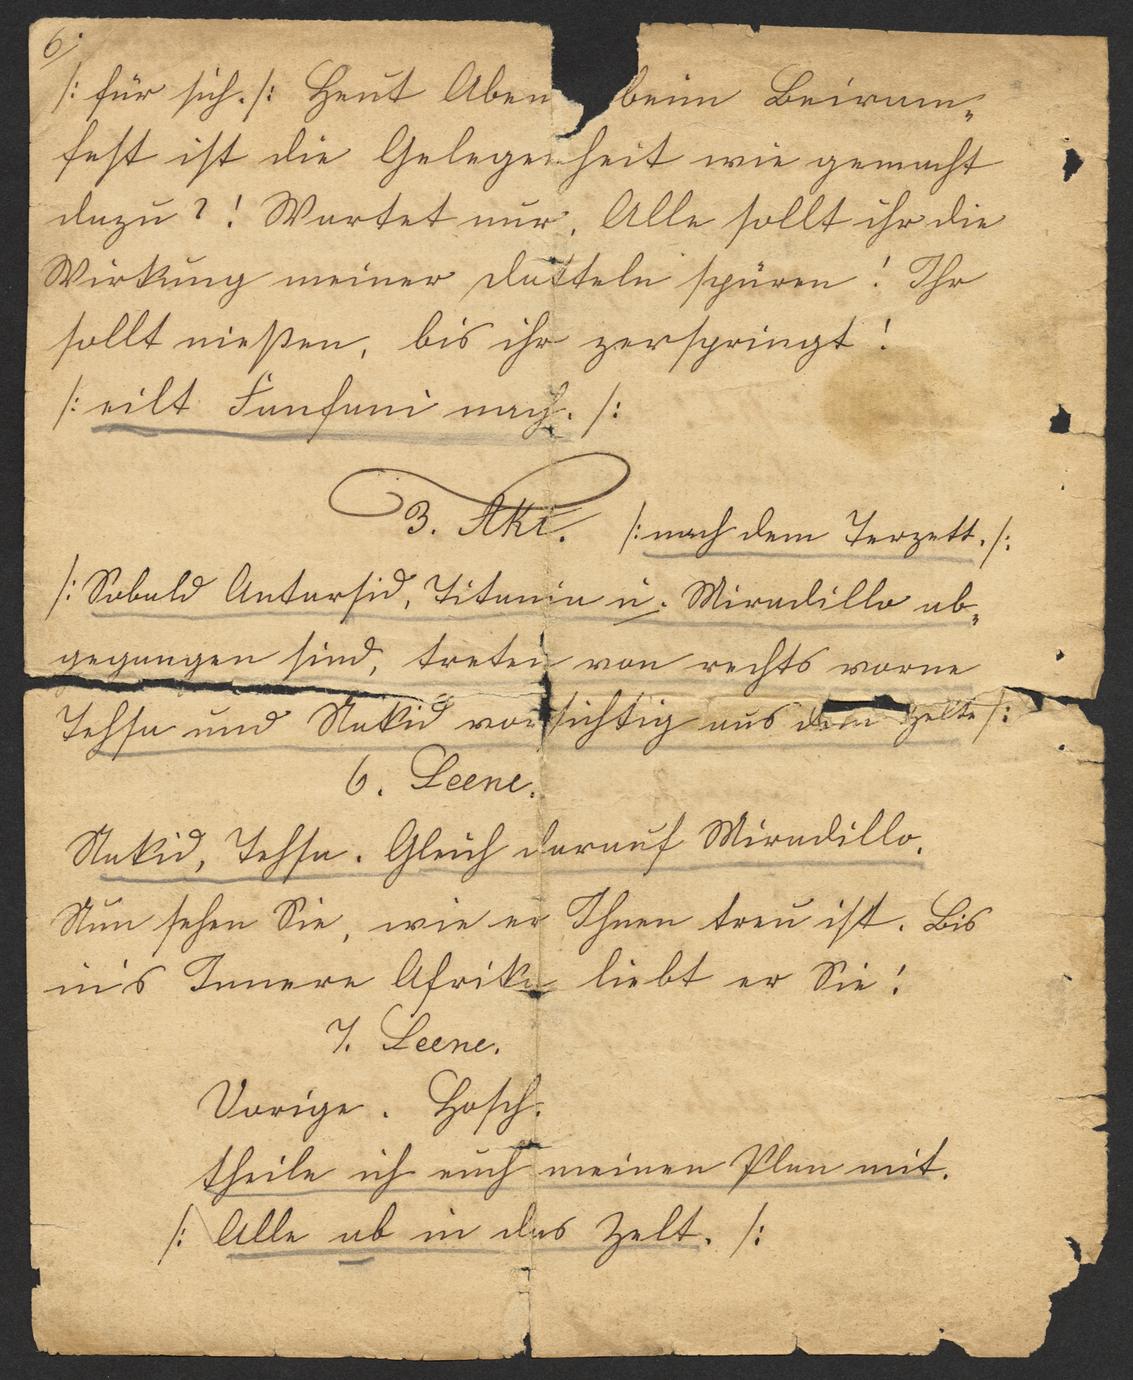 6./
/: für sich. /: Heut Aben beim Beiram-
fest ist die Gelegenheit wie gemacht
dazu?! Wartet nur, Alle sollt ihr die
Wirkung meiner Datteln spüren! Ihr
sollt nießen, bis ihr zerspringt!
/: eilt Fanfani nach. /:
3. Akt. /: nach dem Terzett. /:
/: Sobald Antarsid, Titania u. Miradillo ab-
gegangen sind, treten von rechts vorne
Tehsa und Nakid vorsichtig aus dem Zelte /:
6. Scene.
Nakid, Tehsa. Gleich darauf Miradillo.
Nun sehen Sie, wie er Ihnen treu ist. Bis
in's Innere Afrika liebt er Sie!
7. Scene.
Vorige. Hosch.
theile ich euch meinen Plan mit.
/: Alle ab in das Zelt. /: